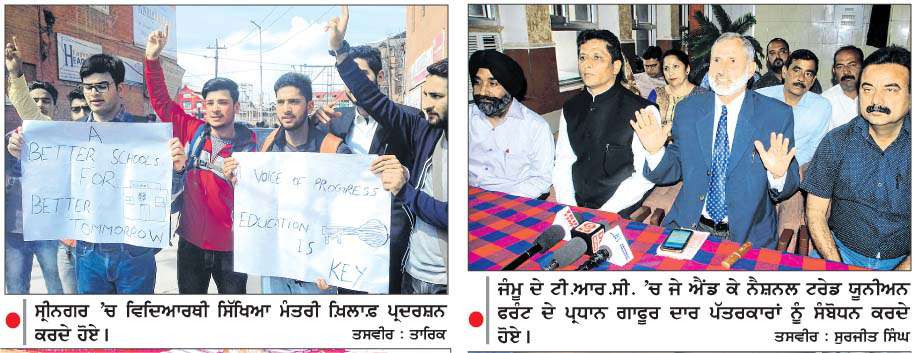 A
BETTER SCHOOLS
FOR
BETTER
TOMMORROW
A VOICE OF PROGRESS
EDUCATION
IS
KEY
ਸ੍ਰੀਨਗਰ ’ਚ ਵਿਦਿਆਰਥੀ ਸਿੱਖਿਆ ਮੰਤਰੀ ਖ਼ਿਲਾਫ਼ ਪ੍ਰਦਰਸ਼ਨ
ਕਰਦੇ ਹੋਏ। ਤਸਵੀਰ : ਤਾਰਿਕ
ਜੰਮੂ ਦੇ ਟੀ.ਆਰ.ਸੀ. ’ਚ ਜੇ ਐਂਡ ਕੇ ਨੈਸ਼ਨਲ ਟਰੇਡ ਯੂਨੀਅਨ
ਫਰੰਟ ਦੇ ਪ੍ਰਧਾਨ ਗਾਫੂਰ ਦਾਰ ਪੱਤਰਕਾਰਾਂ ਨੂੰ ਸੰਬੋਧਨ ਕਰਦੇ
ਹੋਏ। ਤਸਵੀਰ : ਸੁਰਜੀਤ ਸਿੰਘ